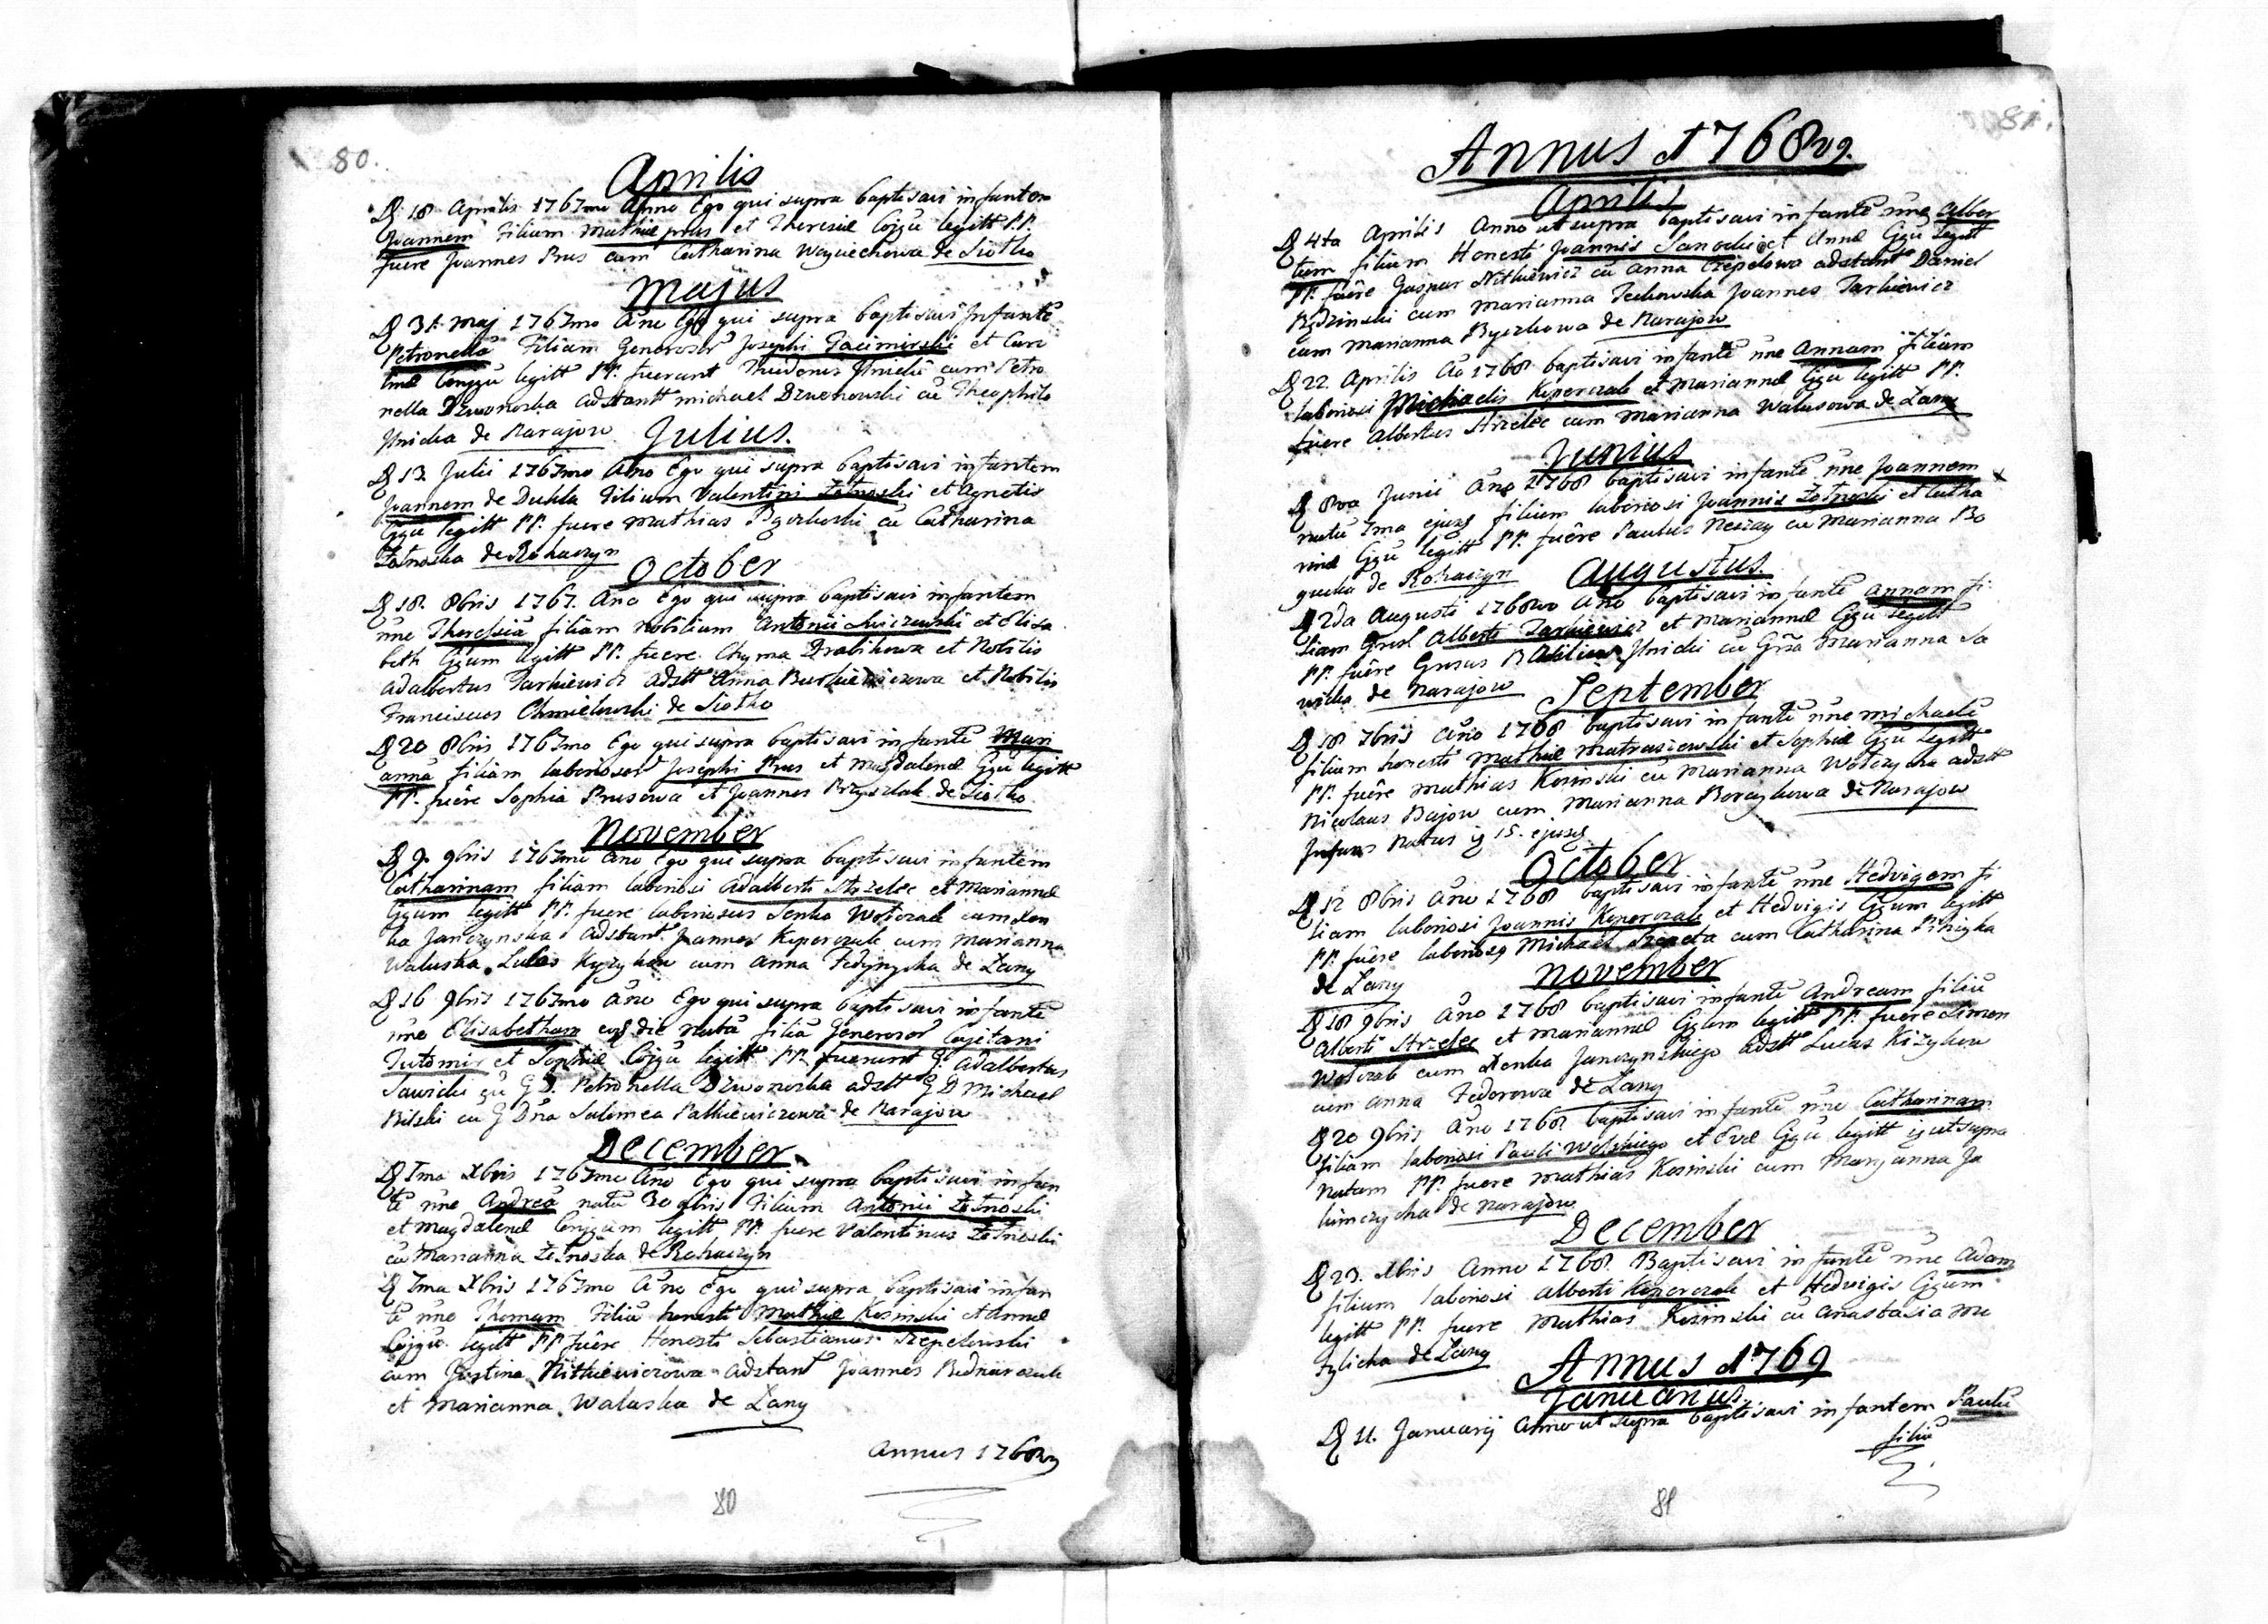 80.
Aprilis
D 18 Aprilis 1767mo Anno Ego qui supra baptisavi infantem
Joannem Filium Mathiæ Prus et Theresiæ Cojgū legitt P.P.
fuere Joannes Prus cum Catharina Woyciechowa de Siołko
Majus
D 31 Maj 1767mo Ano Ego qui supra baptisavi Infantē
Petronellā Filiam Generosor Josephi Jacimirski et Caro
linæ Conjgū legitt PP. fuerunt cum Petro
nella Dzwonoska adstantt Michael Dzwonowski cū Theophila
de Narajow
Julius.
D 13 Julii 1767mo Ano Ego qui supra baptisavi infantem
Joannem de Dukla Filium Valentini Zołnoski et Agnetis
Cjgū legitt PP. fuere Mathias cū Catharina
Zołnoska de Rohaczyn
October
D 18. 8bris 1767. Ano Ego qui supra baptisavi infantem
nne Theressiā filiam Nobilium Antonii et Elisa
beth Cjgum legitt PP. fuere Chyma Drabikowa et Nobilis
Adalbertus Tarkiewicz adstt Anna et Nobilis
Franciscus Chmielowski de Siołko
D 20 8bris 1767mo Ego qui supra baptisavi infantē Mari
annā filiam laboriosor Josephi Prus et Magdalenæ Cjgū legitt
PP. fuēre Sophia Prusowa et Joannes Przyszlak de Siołko
November
D 9. 9bris 1767mo Ano Ego qui supra baptisavi infantem
Catharinam filiam laboriosi Adalberti Strzelec et Mariannæ
Cjgum legitt PP. fuere laboriosus Senko Wołczak cum Xen
ka Janczynska adstant Joannes Keperczak cum Marianna
Waluska Lucas Kyzykow cum Anna Fedynycha de Łany
D 16 9bris 1767mo Ano Ego qui supra baptisavi infantē
nne Elisabetham eod die natā filiā Generosor Cajetani
Jutomir et Sophiæ Cojgū legitt PP. fuerunt G. Adalbertus
Sawicki cū G D. Petronella Dzwonoska adstt G D Michael
Bilski cū G Dna Salomea Patkiewiczowa de Narajow
December
D 1ma Xbris 1767mo Ano Ego qui supra baptisavi infan
tē nne Andreā natū 30 9bris Filium Antonii Zołnoski
et Magdalenæ Conjgum legitt PP. fuere Valentinus Zołnoski
cū Marianna Zołnoska de Rohaczyn
D 7ma Xbris 1767mo Ano Ego qui supra baptisavi infan
tē nne Thomam Filiū honesti Mathiæ Kosinski et Annæ
Cojgū legitt PP fuēre Honesti Sebastianus Szepelowski
cum Justina Nitkiewiczowa adstant Joannes Bednarczuk
et Marianna Waluska de Łany
Annus 1768vo
80
81.
Annus 1768vo.
Aprilis
D 4ta Aprilis Anno ut supra baptisavi infantē nne Alber
tum filium Honesti Joannis Sanocki et Annæ Cjgū legitt
PP. fuēre Gaspar Nitkiewicz cū Anna Czepelowa adstant Daniel
Rydzinski cum Marianna Joannes Tarkiewicz
cum Marianna Byczkowa de Narajow
D 22 Aprilis Ao 1768 baptisavi infantē nne Annam filiam
laboriosi Michaelis Keperczak et Mariannæ Cjgū legitt PP.
fuere Albertus Strzelec cum Marianna Walusowa de Łany
Junius
D 8va Junii Ano 1768 baptisavi infantē nne Joannem
natū 7ma ejusq filium laboriosi Joannis Zołnoski et Catha
rinæ Cjgū legitt PP. fuēre Paulus cū Marianna Bo
gucka de Rohaczyn
Augustus.
D 2da Augusti 1768vo Ano baptisavi infantē Annam fi
liam Alberti Tarkiewicz et Mariannæ Cjgū legitt
PP. fuēre Basilius cū Marianna Sa
wicka de Narajow
September
D 18 7bris Ano 1768 baptisavi infantē nne Michaelē
filium honesti Mathiæ Matrasiewski et Sophiæ Cjgū legitt
PP. fuēre Mathias Kosinski cū Marianna Wołczycha adstt
Nicolaus Bajow cum Marianna Boraykowa de Narajow
Infans Natus 15. ejusq
October
D 12 8bris Ano 1768 baptisavi infantē nne Hedvigem fi
liam laboriosi Joannis Keperczak et Hedvigis Cjgum legitt
PP. fuēre Michael cum Catharina
de Łany
November
D 18 9bris Ano 1768 baptisavi infantē Andream filiū
Alberti Strzelec et Mariannæ Cjgum legitt PP. fuere Simon
Wołczak cum Xenka Janczynskiego adstt Lucas Kizykow
cum Anna Fedorowa de Łany
D 20 9bris Ano 1768 baptisavi infantē nne Catharinam
filiam laboriosi Pauli Wolskiego et Evæ Cjgū legitt ut supra
Natam PP. fuere Mathias Kosinski cum Marjanna Ja
kimczycha de Narajow
December
D 23. Xbris Anno 1768. Baptisavi infantē nne Adam
filium laboriosi Alberti Keperczak et Hedvigis Cjgum
legitt PP. fuere Mathias Kosinski cū Anastasia Mu
zylicha de Łany
Annus 1769
Januarius.
D 11. Januarij Anno ut supra baptisavi infantem Paulū
filiū
81